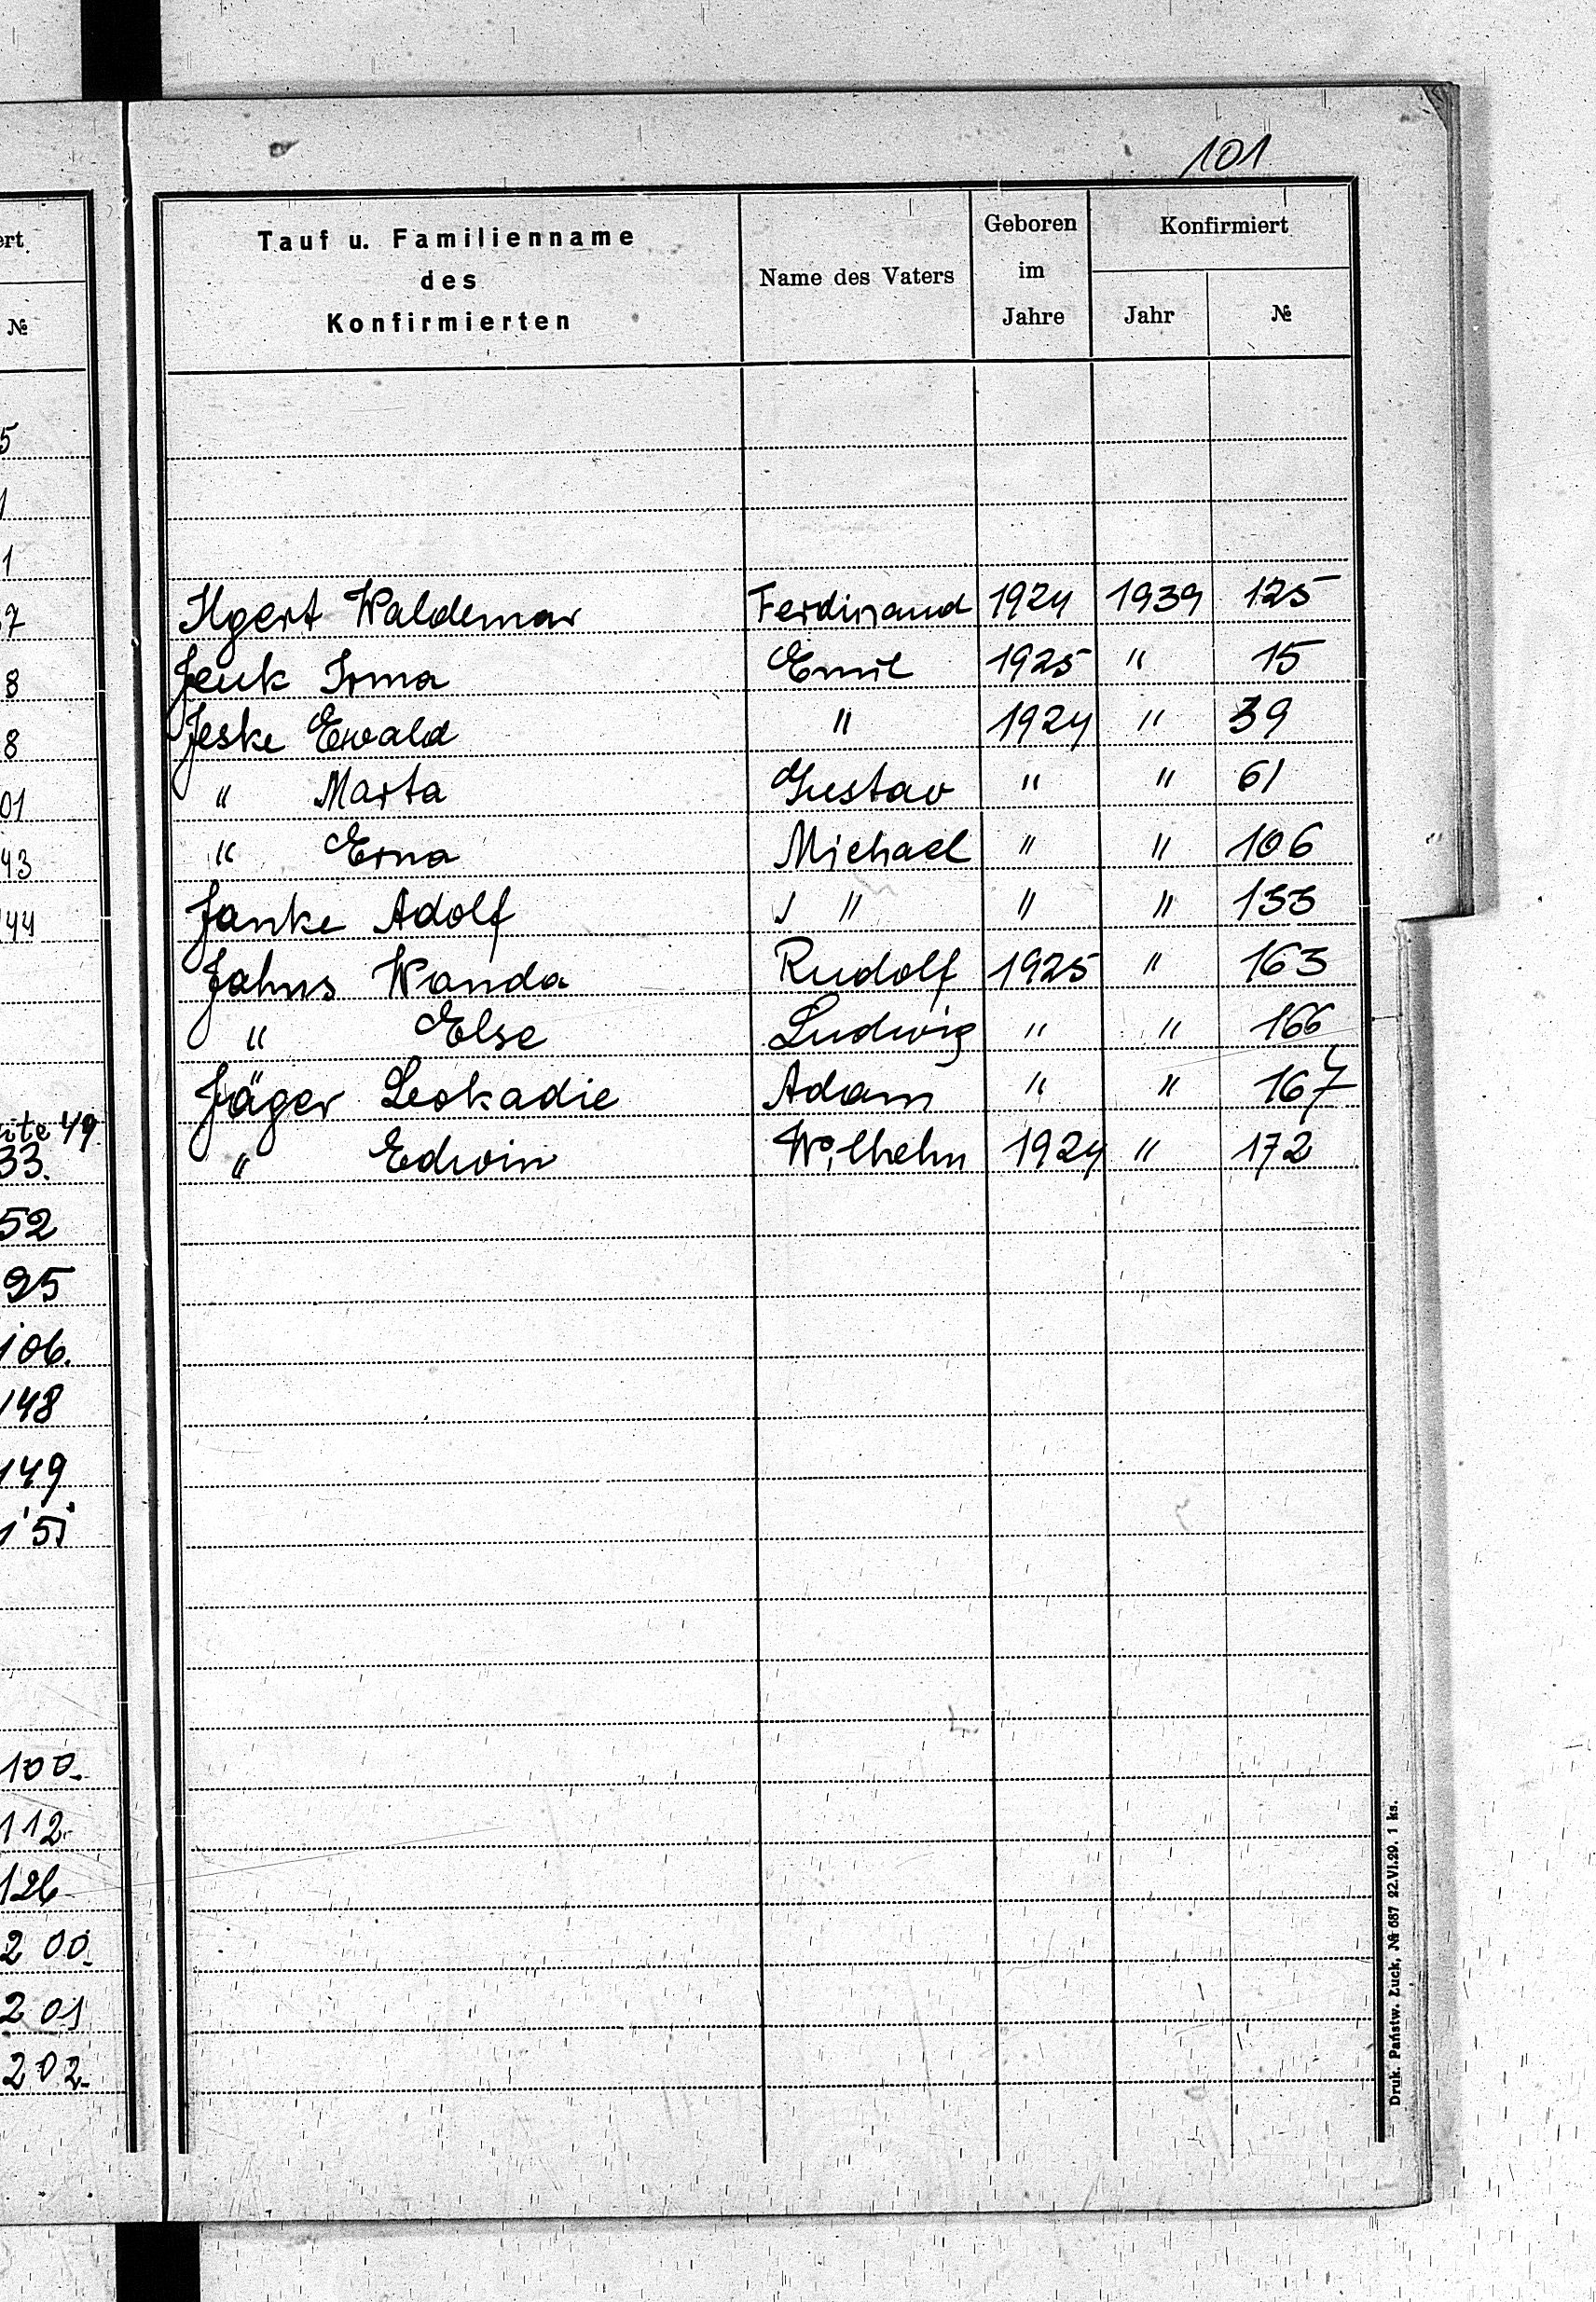 101
ert
№
5
1
1
7
8
8
01
43
44
ite 49
33.
52
95
106.
148
149
151
100.
112.
126
200.
201
202.
Tauf u. Familienname
des
Konfirmierten
Name des Vaters
Geboren
im
Jahre
Konfirmiert
Jahr
№
Ilgert Waldemar Ferdinand 1924 1939 125
Jeuk Irma Emil 1925 " 15
Jeske Ewald " 1924 " 39
" Marta Gustav " " 61
" Erna Michael " " 106
Janke Adolf " " " 133
Jahns Wanda Rudolf 1925 " 163
" Else Ludwig " " 166
Jäger Leokadie Adam " " 167
" Edwin Wilhelm 1924 " 172
Druk. Państw. Łuck, № 687 22.VI.29. 1 ks.